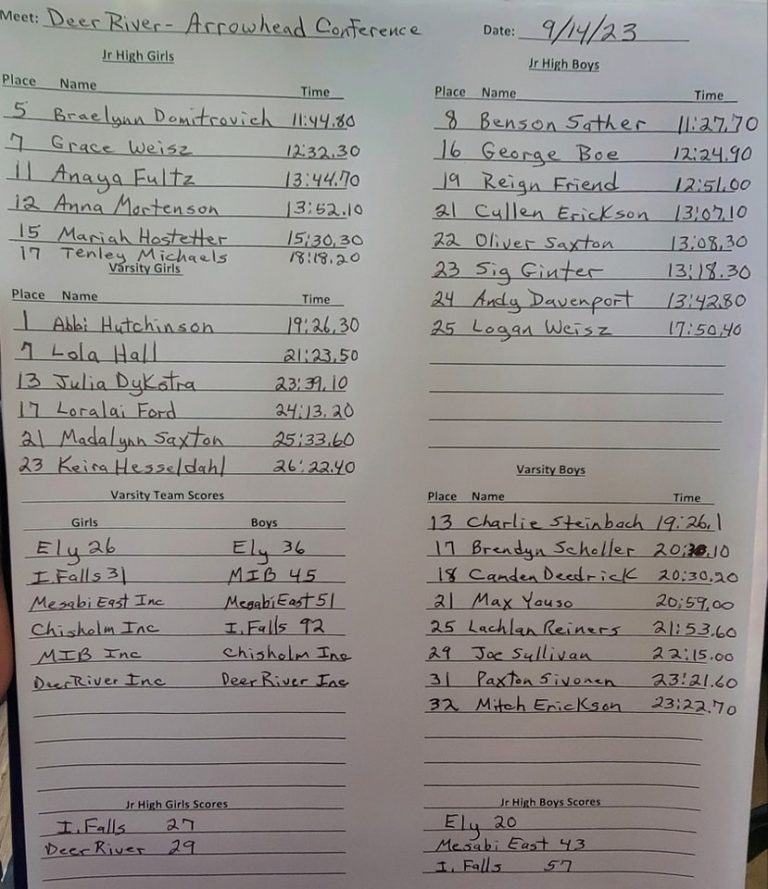 Meet: Deer River - Arrowhead Conference Date: 9/14/23
Jr High Girls
Place Name Time
5 Braelynn Domitrovich 11:44.80
7 Grace Weisz 12:32.30
11 Anaya Fultz 13:44.70
12 Anna Mortenson 13:52.10
15 Mariah Hostetter 15:30.30
17 Tenley Michaels 18:18.20
Varsity Girls
Place Name Time
1 Abbi Hutchinson 19:26.30
7 Lola Hall 21:23.50
13 Julia Dykstra 23:39.10
17 Loralai Ford 24:13.20
21 Madalynn Saxton 25:33.60
23 Keira Hesseldahl 26:22.40
Varsity Team Scores
Girls Boys
Ely 26 Ely 36
I. Falls 31 MIB 45
Mesabi East Inc Mesabi East 51
Chisholm Inc I. Falls 92
MIB Inc Chisholm Inc
Deer River Inc Deer River Inc
Jr High Girls Scores
I. Falls 27
Deer River 29
Jr High Boys
Place Name Time
8 Benson Sather 11:27.70
16 George Boe 12:24.90
19 Reign Friend 12:51.00
21 Cullen Erickson 13:07.10
22 Oliver Saxton 13:08.30
23 Sig Ginter 13:18.30
24 Andy Davenport 13:42.80
25 Logan Weisz 17:50.40
Varsity Boys
Place Name Time
13 Charlie Steinbach 19:26.1
17 Brendyn Scholler
18 Camden Deedrick 20:30.20
21 Max Youso 20:59.00
25 Lachlan Reiners 21:53.60
29 Joe Sullivan 22:15.00
31 Paxton Sivonen 23:21.60
32 Mitch Erickson 23:22.70
Jr High Boys Scores
Ely 20
Mesabi East 43
I. Falls 57